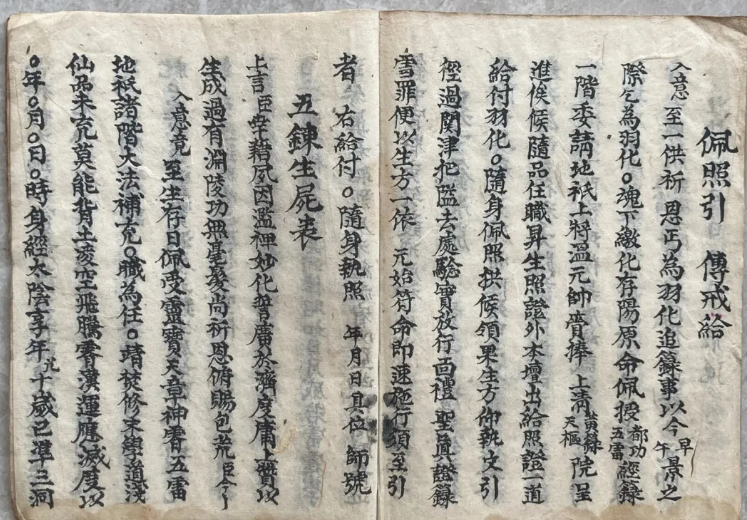 佩照引　傳戒給
入意　至一供祈　恩丐為羽化追籙事以今早午景之
際乞為羽化〇魂下繳化存陽原命佩授都功五雷經籙
一階委請地祇上將溫元帥賫捧　上清黃籙天樞院呈
進俟候隨品任職昇生照證外本壇出給照證一道
給付羽化〇隨身佩照拱候領果生方仰執文引
徑過関津把隘去處驗實放行面禮　聖真證籙
雪罪便以生方一依　元始符命即速施行須至引
者　右給付〇隨身執照　年月日具位　師號
五鍊生屍表
上言臣宰藉夙因濫禆妙化誓廣於濟度庸上賫以
生成過有淵陵功無毫髮尚祈恩俯賜包荒臣今
入意竟　至生存日佩受靈寶天章神霄五雷
地祇諸階大法補充〇職為任〇靖焚修末學道淺
仙品未充莫能背土凌空飛騰霄漢運應滅度以
〇年〇月〇日〇時身經太陰享年九十歲已準三洞